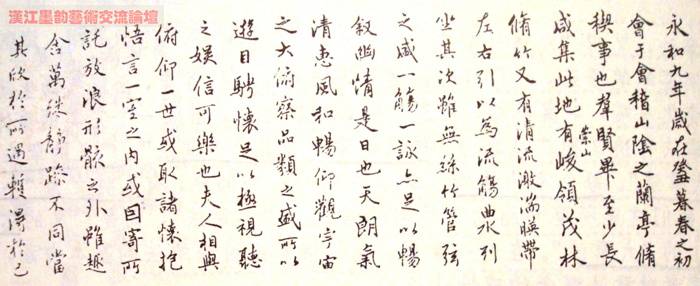 漢江墨韵藝術交流論壇
永和九年歲在癸丑暮春之初
會于會稽山陰之蘭亭脩
禊事也羣賢畢至少長
崇山
咸集此地有峻領茂林
脩竹又有清流激湍暎帶
左右引以為流觴曲水列
坐其次雖無絲竹管弦
之盛一觴一詠亦足以暢
敘幽情是日也天朗氣
清惠風和暢仰觀宇宙
之大俯察品類之盛所以
遊目騁懷足以極視聽
之娛信可樂也夫人相與
俯仰一世或取諸懷抱
悟言一室之內或因寄所
託放浪形骸之外雖趣
舍萬殊靜躁不同當
其欣於所遇暫得於己